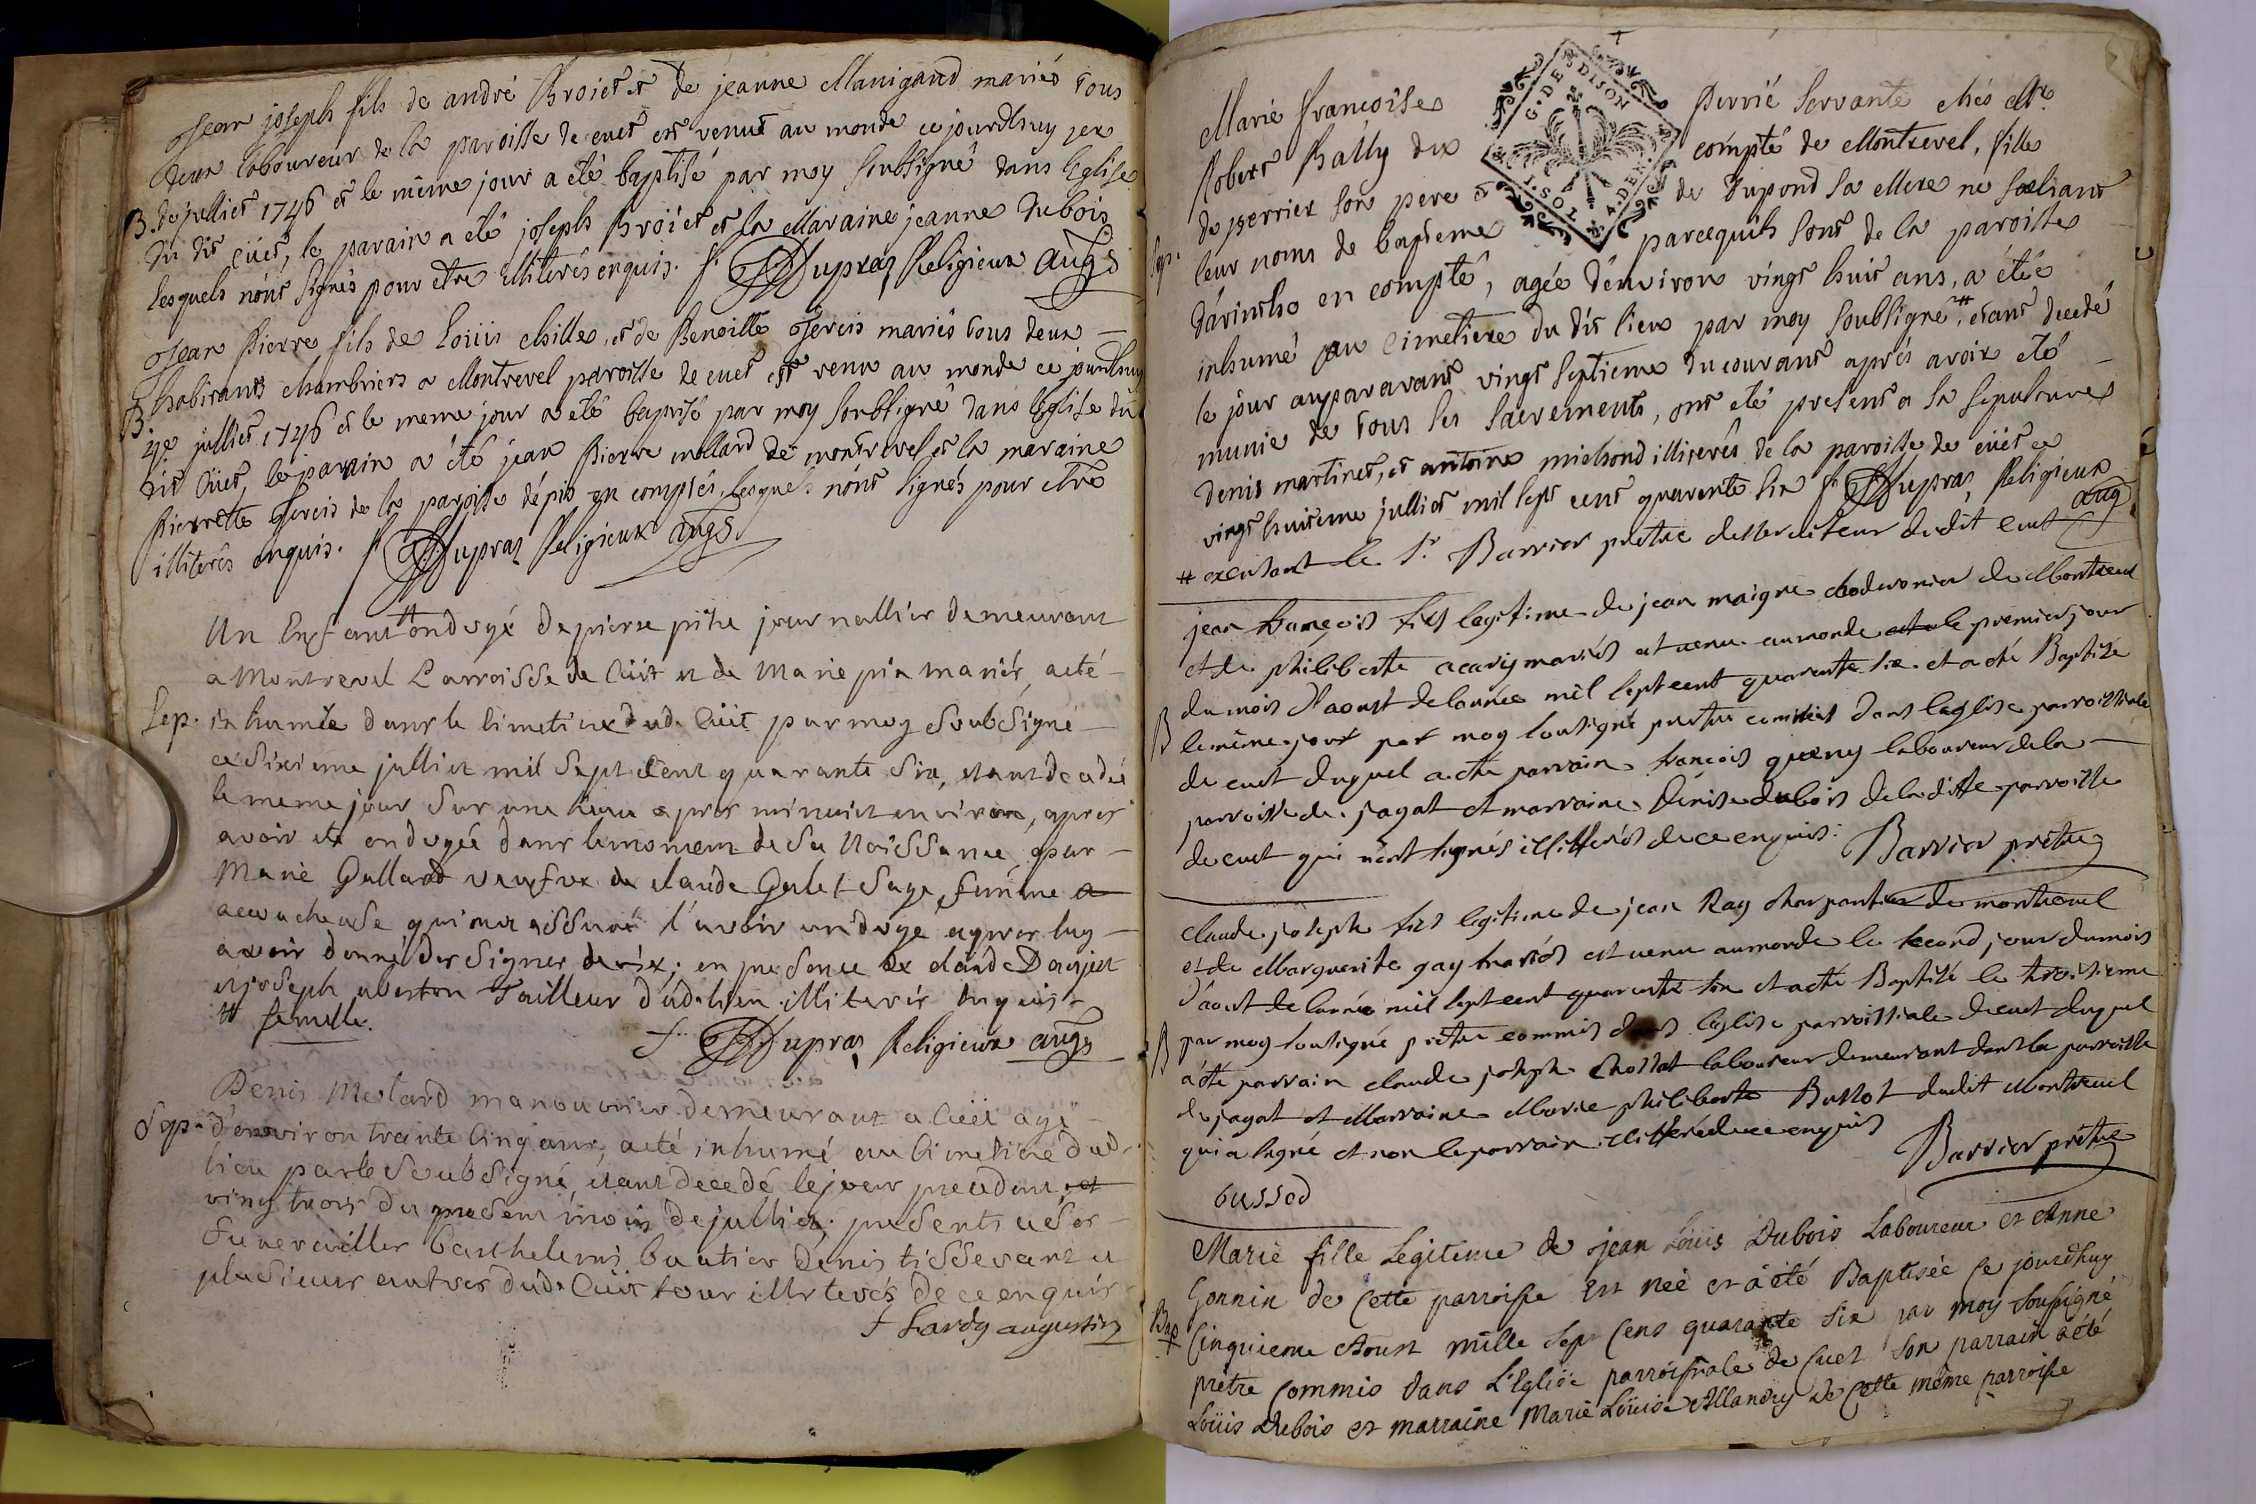 Jean joseph fils de andré Broiet et de jeanne Manigand mariés tous
deux laboureur de la paroisse de cuet est venut au monde ce jourdhuy
B. de juillet 1746 et le même jour a été baptisé par moy soubsigné dans l'Eglise
du dit cüet, le parain a été joseph Broiet et la Maraine jeanne dubois
lesquels n'ont signés pour être illiterés enquis. f. Dupras Religieux augs
Jean Pierre fils de Loüis et de Benoitte Jereis mariés tous deux
habitants chambriers a Montrevel paroisse de cuet est venu au monde ce jourdhuy
B. juillet 1746 et le meme jour a été baptisé par moy soubsigné dans l'Eglise du
dit Cüet, le parain a été jean Pierre mollard de montrevel et la maraine
Pierrette Jereis de la paroisse en comptés, lesquels n'ont signés pour etre
illiterés enquis. f. Dupras Religieux augs.
Un Enfant # ondoyé de pierre pitre journallier demeurant
a Montrevel Parroisse de Cüet et de Marie pia mariés, a eté
Sep. inhumée dans le Cimetiere dud. Cüit par moy Soubsigné
ce Sixieme julliet mil Sept Cent quarante Six, etant decedée
le meme jour Sur une heure apres minuict environ, apres
avoir eté ondoyée dans le moment de Sa Naissance par
Marie Gallard veufve de claude Sage femme
accoucheuse qui m'at assuré l'avoir ondoyé apres luy
avoir donné des Signes de vie; en presence de claude
et joseph tailleur dud. lieu illiterés enquis
# femelle.
f. Dupras Religieux augs
Denis Mestard manouvrier demeurant a Cüet agé
Sep. d'environ trante Cinq ans, a eté inhumé au Cimetiere dud.
lieu par le Soubsigné, etant decedé le jour precedent
vingt trois du present mois de julliet; presents a Ses
funerailles Barthelemi Denis tisserant et
plusieurs autres dud. Cüit tous illiterés de ce enquis
f hardy augustin
Marie françoise Perrié servante chés Mr.
Robert Bally du compté de Montrevel, fille
de perrier son pere et de Dupond sa Mere ne sachant
G. DE DIJON
1. SOL. 4. DEN.
Sep. leur noms de bapteme parcequils sont de la paroisse
en compté, agée d'environ vingt huit ans, a étée
inhumé au cimetiere du dit lieu par moy soubsigné #, etant decedé
le jour auparavant vingt septieme du courant aprés avoir été
munie de tous les sacrements, ont été present a sa sepulture
Denis martinet, et antoine michond illiterés de la paroisse de cüet ce
vingt huitieme julliet mil sept cent quarente six f. Dupras Religieux
aug
# exentant le Sr. Barrier prêtre desserviteur dudit cuet
jean françois fils legitime de jean maigre chaderonier de Montrevel
et de philiberte acarys mariés est venu au monde le premier jour
du mois d'aoust de lannée mil sept cent quarente six et a été Baptisé
B le même jour par moy soussigné prestre commis dans leglise parroissiale
de cuet duquel a eté parrain françois laboureur de la
parroisse de jayat et marraine Denise dubois de la ditte parroisse
de cuet qui n'ont signés illitterés de ce enquis. Barrier prêtre
claude joseph fils legitime de jean Ray charpantier de montrevel
et de Marguerite gay mariés est venu au monde le second jour du mois
d'aout de lannée mil sept cent quarente six et a eté Baptisé le troisieme
B par moy soussigné prêtre commis dans leglise parroissiale de cuet duquel
a eté parrain claude joseph Chossat laboureur demeurant dans la parroisse
de jayat et Marraine Marie philiberte Bussot dudit Montrevel
qui a signé et non le parrain illitteré de ce enquis
Barrier prêtre
bussod
Marie fille Legitime de jean Loüis Dubois Laboureur et Anne
Gonnin de Cette parroisse Est neé et a été Baptisée Ce jourdhuy
Bap Cinquieme Aoust mille Sep Cens quarante Six par moy Soussigné
prêtre Commis dans L'Eglise parroissiale de Cuet Son parrain a été
Loüis Dubois et marraine Marie Loüise Allandry de Cette même parroisse